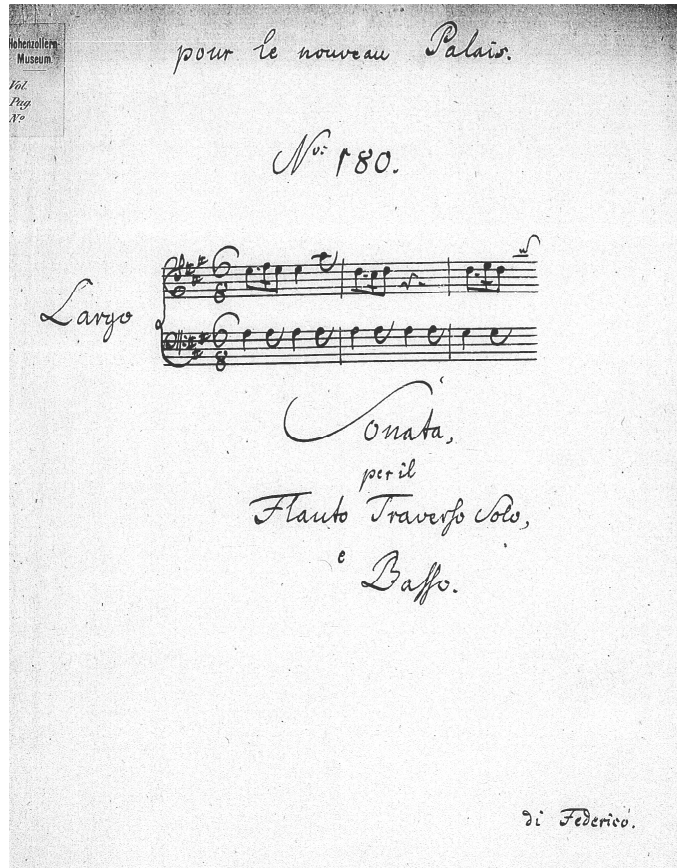 Hohenzollern-
Museum.
Vol.
Pag.
Nº
pour le nouveau Palais.
No: 180.
Largo
Sonata,
per il
Flauto Traverso Solo,
e
Basso.
di Federico.